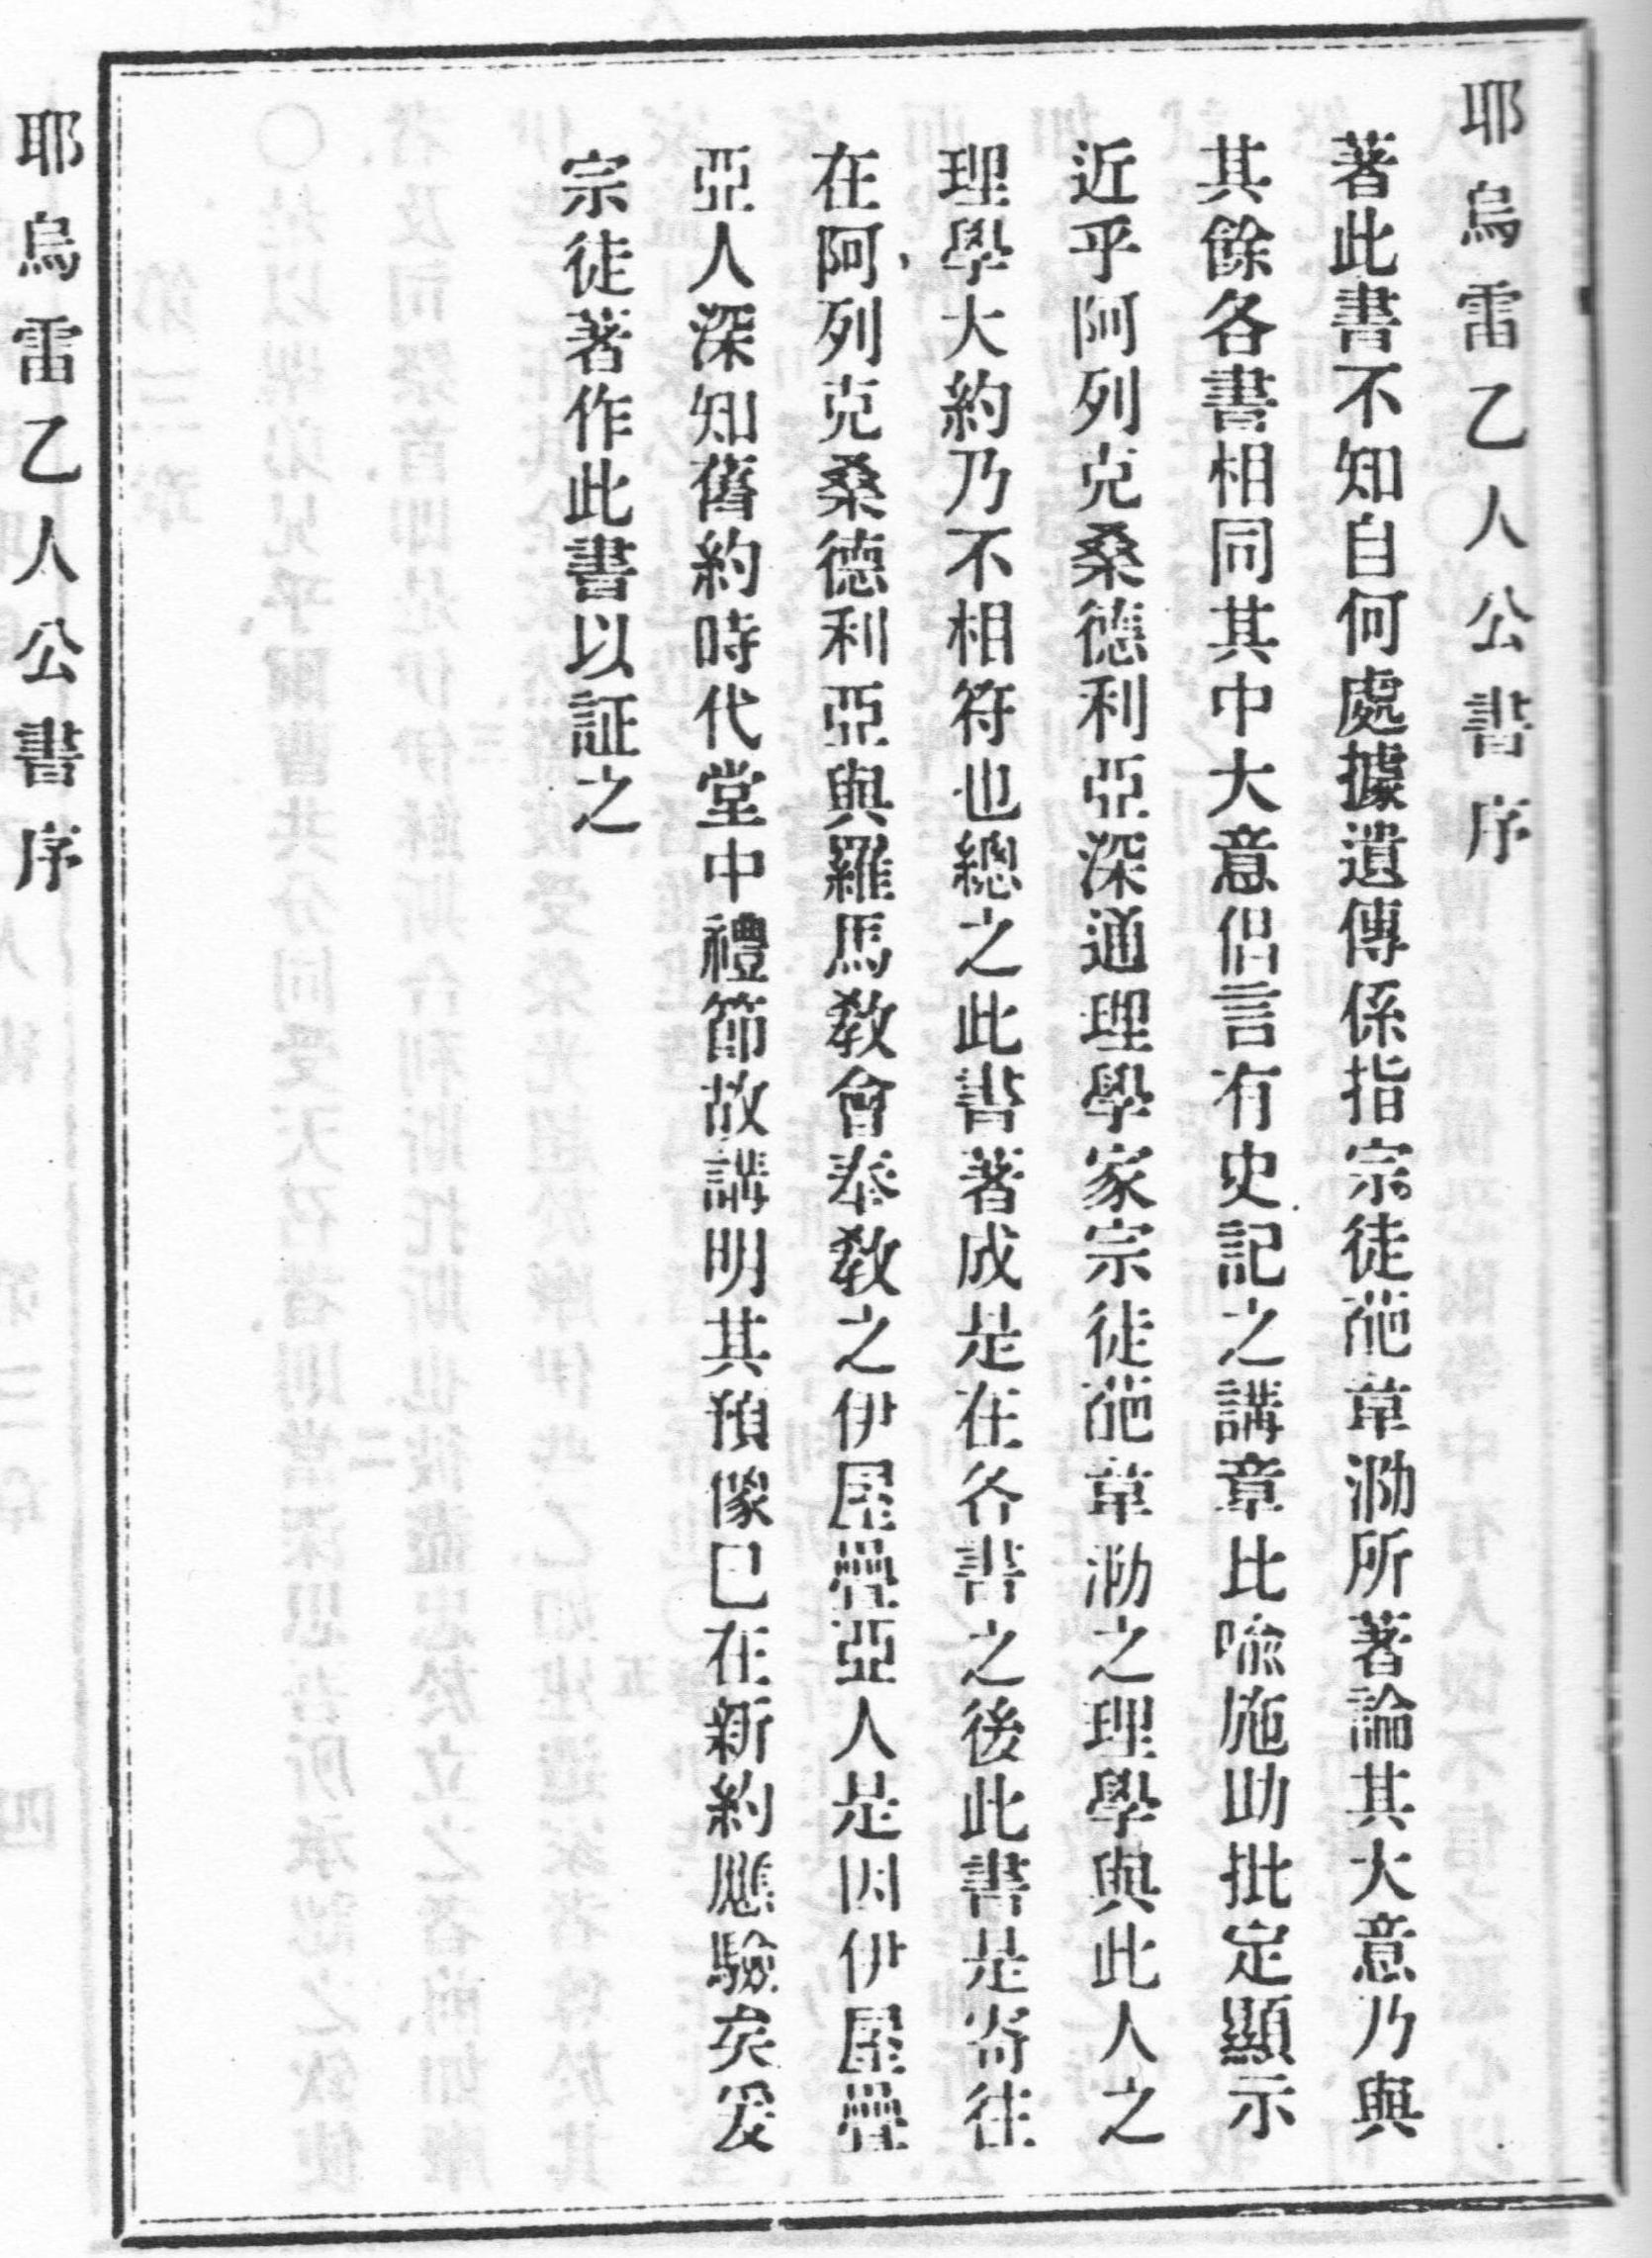 耶烏雷乙人公書序
著此書不知自何處據遺傳係指宗徒葩韋泐所著論其大意乃與
其餘各書相同其中大意侶言有史記之講章比喩施助批定顯示
近乎阿列克桑德利亞深通理學家宗徒葩韋泐之理學與此人之
理學大約乃不相符也總之此書著成是在各書之後此書是寄往
在阿列克桑德利亞與羅馬敎會奉敎之伊屋疊亞人是因伊屋疊
亞人深知舊約時代堂中禮節故講明其預像已在新約應驗矣爰
宗徒著作此書以証之
耶烏雷乙人公書序